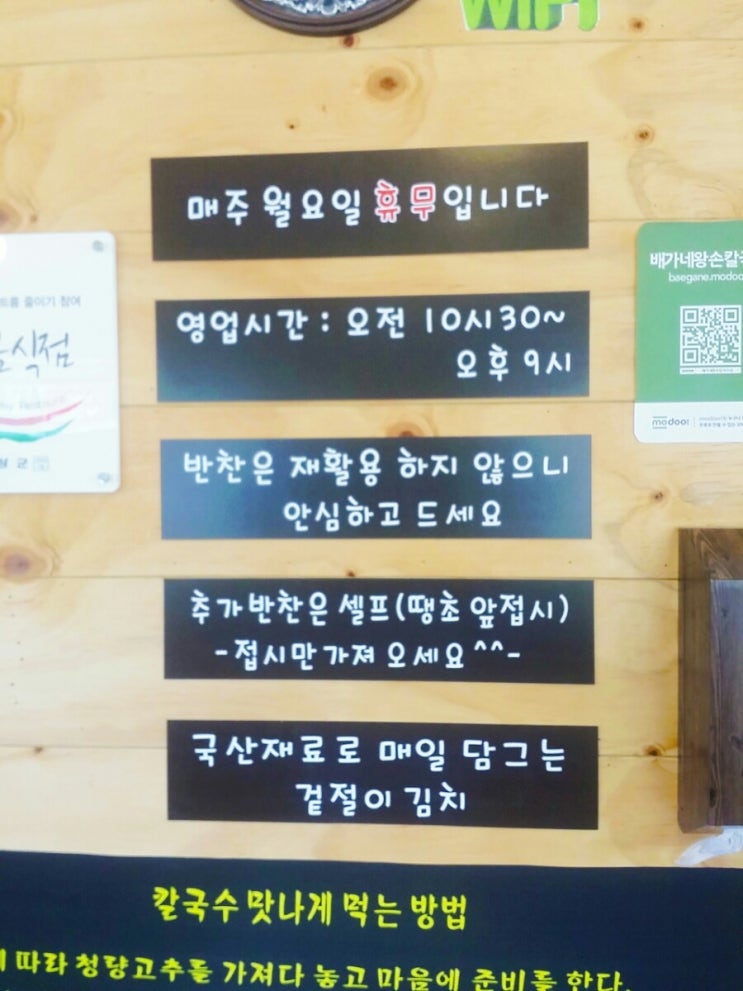 WiFi
매주 월요일 휴무입니다
영업시간 : 오전 10시30~
오후 9시
반찬은 재활용 하지 않으니
안심하고 드세요
추가반찬은 셀프(땡초 앞접시)
-접시만 가져 오세요^^-
국산재료로 매일 담그는
겉절이 김치
칼국수 맛나게 먹는 방법
따라 청량고추를 가져다 놓고 마음에 준비를 한다.
줄이기 참여
식점
배가네왕손칼
baegane.modoo
modoo!